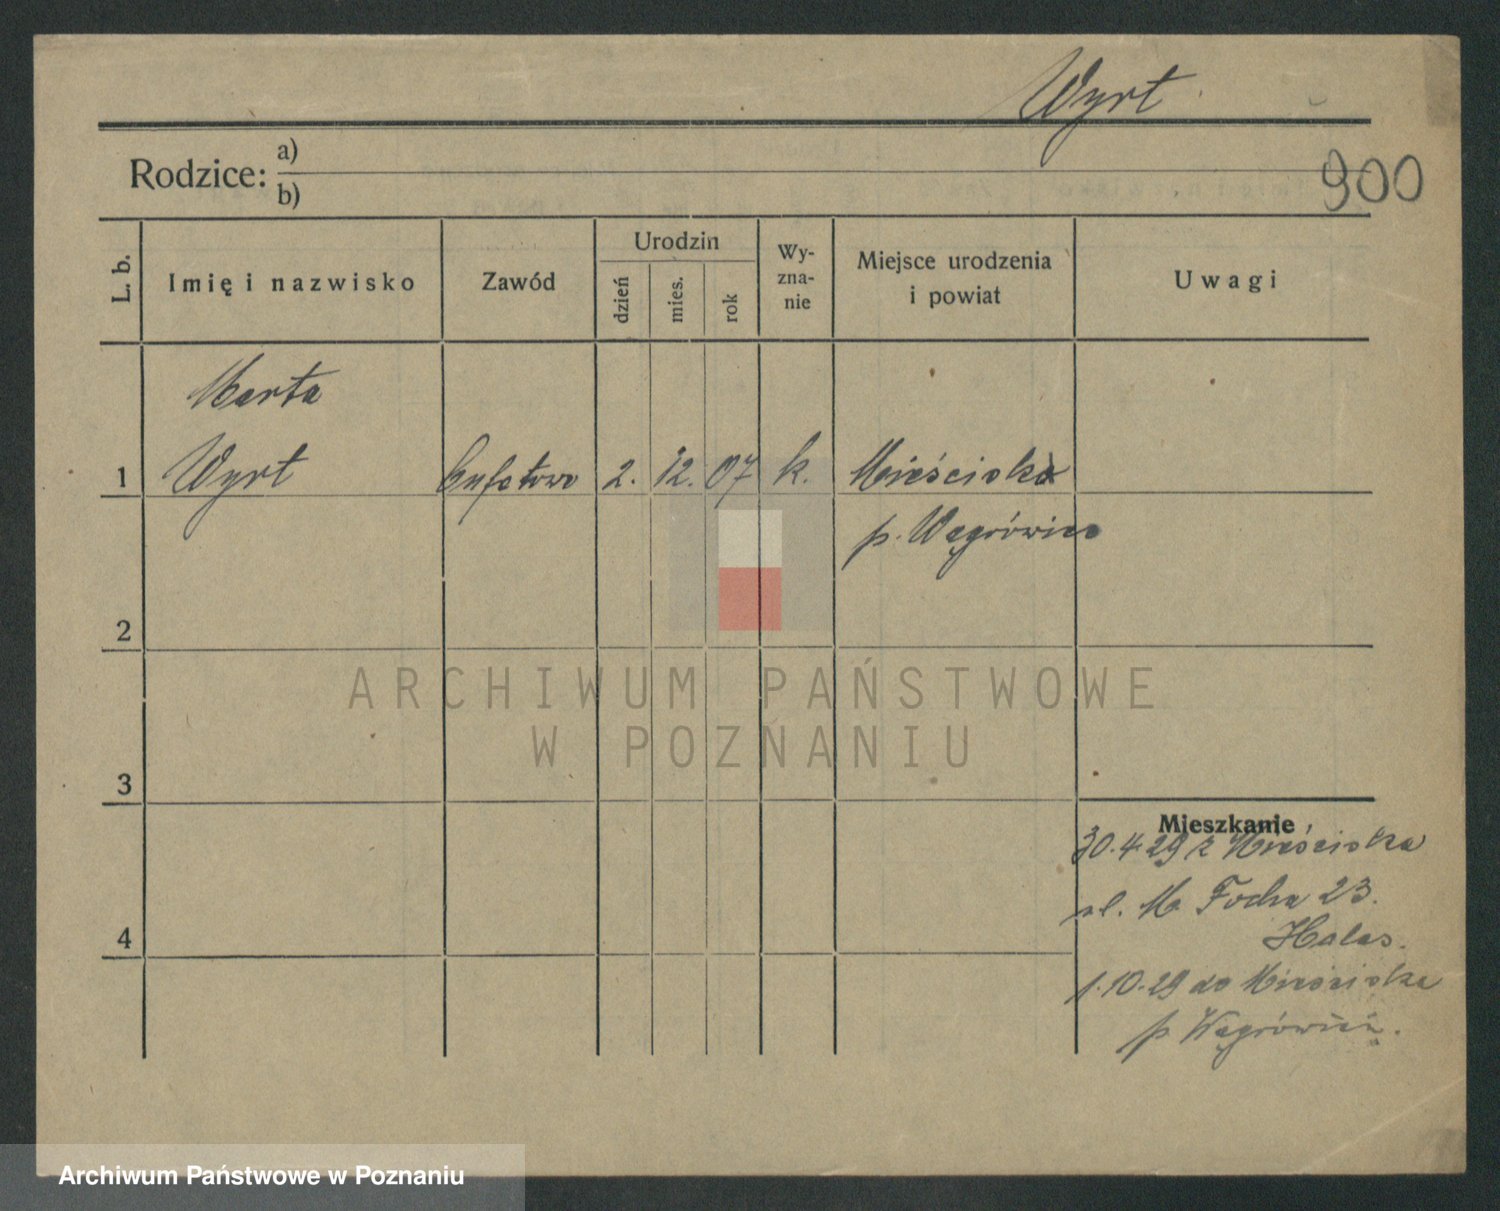 Wyrt
Rodzice:
a)
b)
900
L. b.
Imię i nazwisko
Zawód
Urodzin
dzień
mies.
rok
Wy-
zna-
nie
Miejsce urodzenia
i powiat
Uwagi
Marta
1 Wyrt bufetowa 2. 12. 07 k. Mieściska
p. Wągrówiec
2
3
4
Mieszkanie
30.4.29 z Mieściska
ul. M. Focha 23.
Halas.
1.10.29 do Mieściska
p. Wągrówiec.
ARCHIWUM PAŃSTWOWE
W POZNANIU
Archiwum Państwowe w Poznaniu